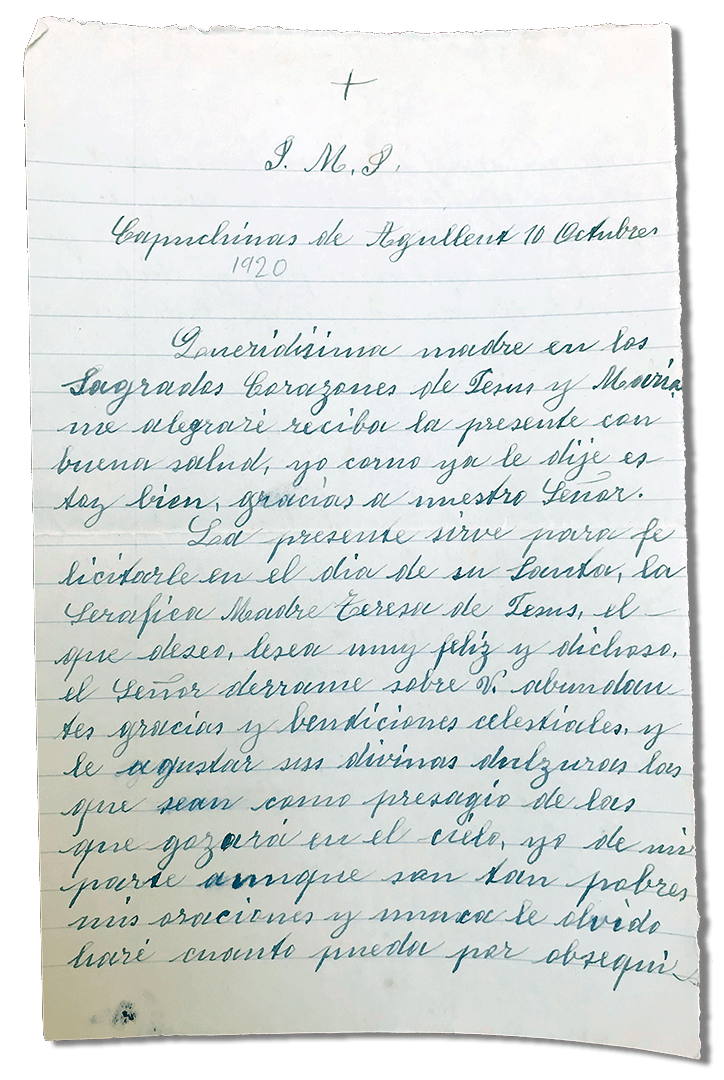 +
J. M. J.
Capuchinas de Agullent 10 Octubre
1920
Queridísima madre en los
Sagrados Corazones de Jesus y Maria,
me alegraré reciba la presente con
buena salud, yo como ya le dije es
toy bien, gracias a nuestro Señor.
La presente sirve para fe
licitarle en el dia de su Santa, la
Serafica Madre Teresa de Jesus, el
que deseo, lesea muy feliz y dichoso,
el Señor derrame sobre V. abundan
tes gracias y bendiciones celestiales, y
le agustar sus divinas dulzuras las
que sean como presagio de las
que gozará en el cielo, yo de mi
parte aunque son tan pobres
mis oraciones y nunca le olvido
haré cuanto pueda por obsequi